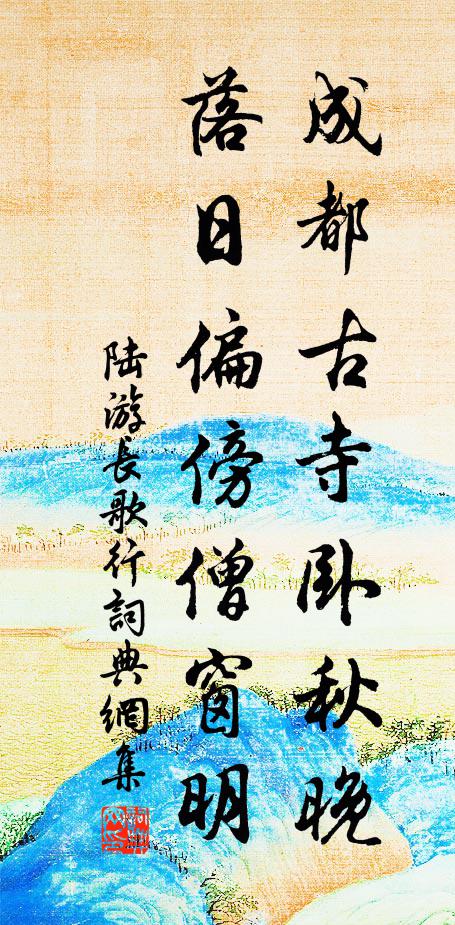 成都古寺卧秋晚
落日偏傍僧窗明
陆游長歌行詞典網集